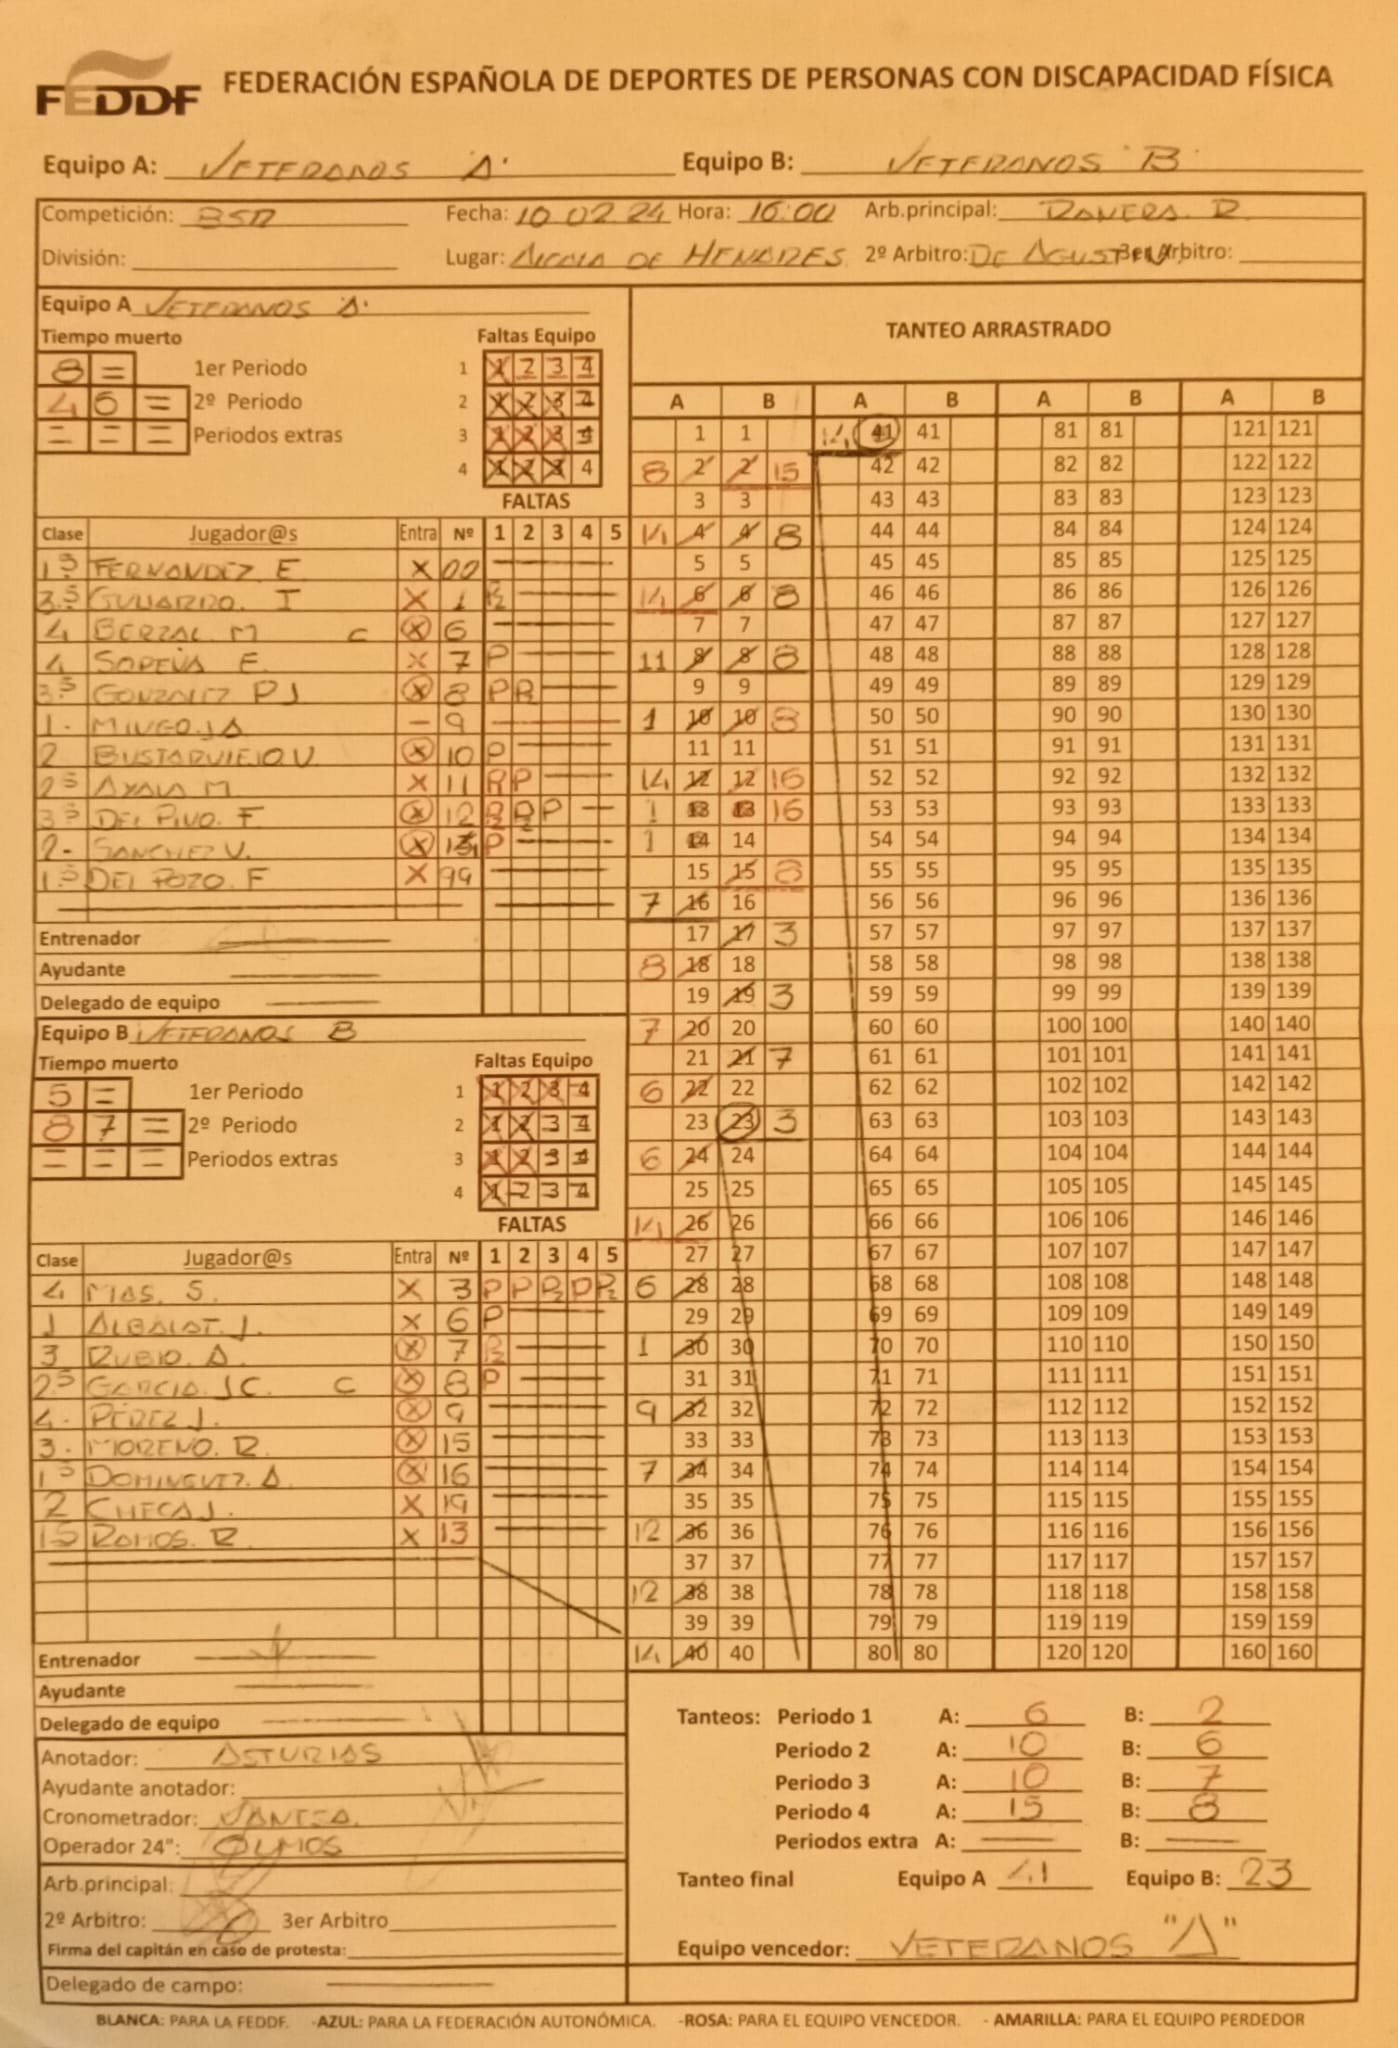 FEDDF FEDERACIÓN ESPAÑOLA DE DEPORTES DE PERSONAS CON DISCAPACIDAD FÍSICA
Equipo A: VETERANOS "A" Equipo B: VETERANOS "B"
Competición: BSR Fecha: 10 02 24 Hora: 16:00 Arb.principal: RANERA. R.
División: Lugar: ALCALA DE HENARES 2º Arbitro: DE AGUSTIN 3er Arbitro:
Equipo A VETERANOS "A"
Tiempo muerto Faltas Equipo
8 = 1er Periodo 1 1 2 3 4
4 6 = 2º Periodo 2 1 2 3 4
= = = Periodos extras 3 1 2 3 4
4 1 2 3 4
FALTAS
Clase Jugador@s Entra Nº 1 2 3 4 5
1.5 FERNANDEZ. E X 00
3.5 I X 1 P2
4 BERZAL. M C X 6
4 SOPEÑA E. X 7 P
3.5 GONZALEZ PJ X 8 P P2
1. MINGO. JA - 9
2 BUSTARVIEJO. V X 10 P
2.5 AYALA M. X 11 P P
3.5 DEL PINO. F X 12 P2 P2 P
2- SANCHEZ V. X P
1.5 DEL POZO. F X 99
Entrenador
Ayudante
Delegado de equipo
Equipo B VETERANOS B
Tiempo muerto Faltas Equipo
5 = 1er Periodo 1 1 2 3 4
8 7 = 2º Periodo 2 1 2 3 4
= = = Periodos extras 3 1 2 3 4
4 1 2 3 4
FALTAS
Clase Jugador@s Entra Nº 1 2 3 4 5
4 MAS. S. X 3 P P P2 P P2
1 ALBALAT. J. X 6 P
3 RUBIO. A. X 7 P2
2.5 GARCIA. JC C X 8 P
4. PÉREZ J. X 9
3. MORENO. R. X 15
1.5 DOMINGUEZ. A. X 16
2 CHECA J. X 19
1.5 RAMOS. R. X 13
Entrenador
Ayudante
Delegado de equipo
Anotador: ASTURIAS
Ayudante anotador:
Cronometrador:
Operador 24": OLMOS
Arb.principal:
2º Arbitro: 3er Arbitro
Firma del capitán en caso de protesta:
Delegado de campo:
TANTEO ARRASTRADO
A B A B A B A B
1 1 14 41 41 81 81 121 121
8 2 2 15 42 42 82 82 122 122
3 3 43 43 83 83 123 123
14 4 4 8 44 44 84 84 124 124
5 5 45 45 85 85 125 125
14 6 6 8 46 46 86 86 126 126
7 7 47 47 87 87 127 127
11 8 8 8 48 48 88 88 128 128
9 9 49 49 89 89 129 129
1 10 10 8 50 50 90 90 130 130
11 11 51 51 91 91 131 131
14 12 12 16 52 52 92 92 132 132
1 13 13 16 53 53 93 93 133 133
1 14 14 54 54 94 94 134 134
15 15 8 55 55 95 95 135 135
7 16 16 56 56 96 96 136 136
17 17 3 57 57 97 97 137 137
8 18 18 58 58 98 98 138 138
19 19 3 59 59 99 99 139 139
7 20 20 60 60 100 100 140 140
21 21 7 61 61 101 101 141 141
6 22 22 62 62 102 102 142 142
23 23 3 63 63 103 103 143 143
6 24 24 64 64 104 104 144 144
25 25 65 65 105 105 145 145
14 26 26 66 66 106 106 146 146
27 27 67 67 107 107 147 147
6 28 28 68 68 108 108 148 148
29 29 69 69 109 109 149 149
1 30 30 70 70 110 110 150 150
31 31 71 71 111 111 151 151
9 32 32 72 72 112 112 152 152
33 33 73 73 113 113 153 153
7 34 34 74 74 114 114 154 154
35 35 75 75 115 115 155 155
12 36 36 76 76 116 116 156 156
37 37 77 77 117 117 157 157
12 38 38 78 78 118 118 158 158
39 39 79 79 119 119 159 159
14 40 40 80 80 120 120 160 160
Tanteos: Periodo 1 A: 6 B: 2
Periodo 2 A: 10 B: 6
Periodo 3 A: 10 B: 7
Periodo 4 A: 15 B: 8
Periodos extra A: B:
Tanteo final Equipo A 41 Equipo B: 23
Equipo vencedor: VETERANOS "A"
BLANCA: PARA LA FEDDF. -AZUL: PARA LA FEDERACIÓN AUTONÓMICA. -ROSA: PARA EL EQUIPO VENCEDOR. - AMARILLA: PARA EL EQUIPO PERDEDOR